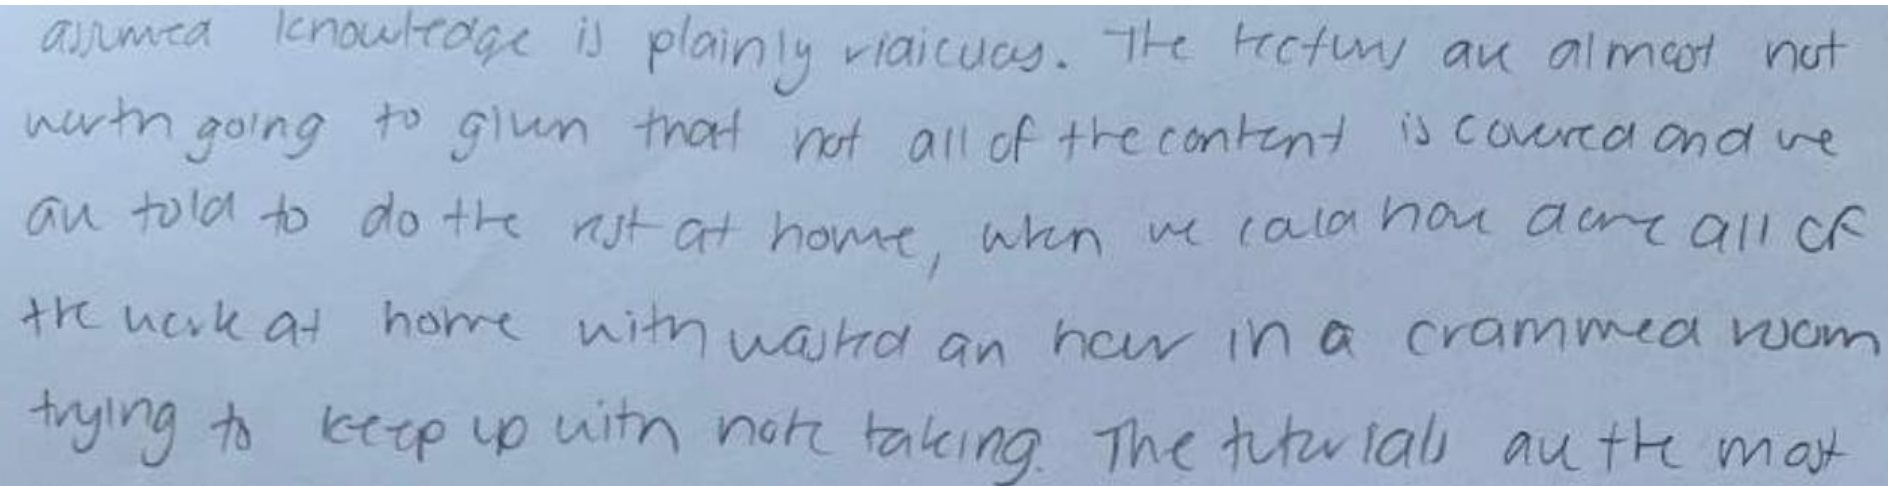 assumed knowledge is plainly ridiculous. The lectures are almost not
worth going to given that not all of the content is covered and we
are told to do the rest at home, when we could have done all of
the work at home with wasted an hour in a crammed room
trying to keep up with note taking. The tutorials are the most